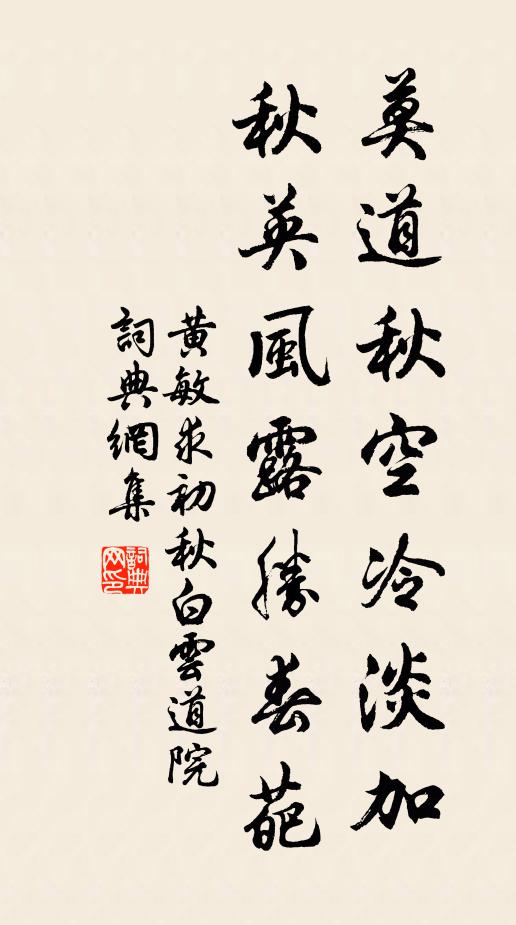 莫道秋空冷淡加
秋英風露勝春葩
黃敏求初秋白雲道院
詞典網集
詞典網印